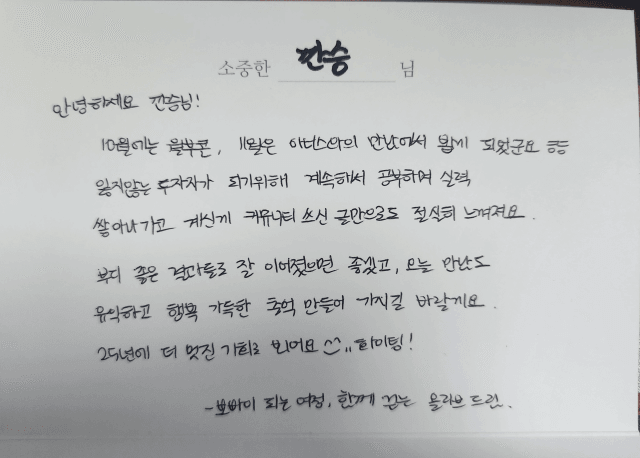 소중한 깐승 님
안녕하세요 깐승님!
10월에는 월부콘, 11월은 아너스와의 만남에서 뵙게 되었군요 ㅎㅎ
잃지않는 투자자가 되기위해 계속해서 공부하며 실력
쌓아나가고 계신게 커뮤니티 쓰신 글만으로도 절실히 느껴져요.
부디 좋은 결과들로 잘 이어졌으면 좋겠고, 오늘 만남도
유익하고 행복 가득한 추억 만들어 가지길 바랄게요.
25년에 더 멋진 기회로 뵈어요 ^^,, 화이팅!
- 보배이 되는 여정, 함께 걷는 올라브 드림.